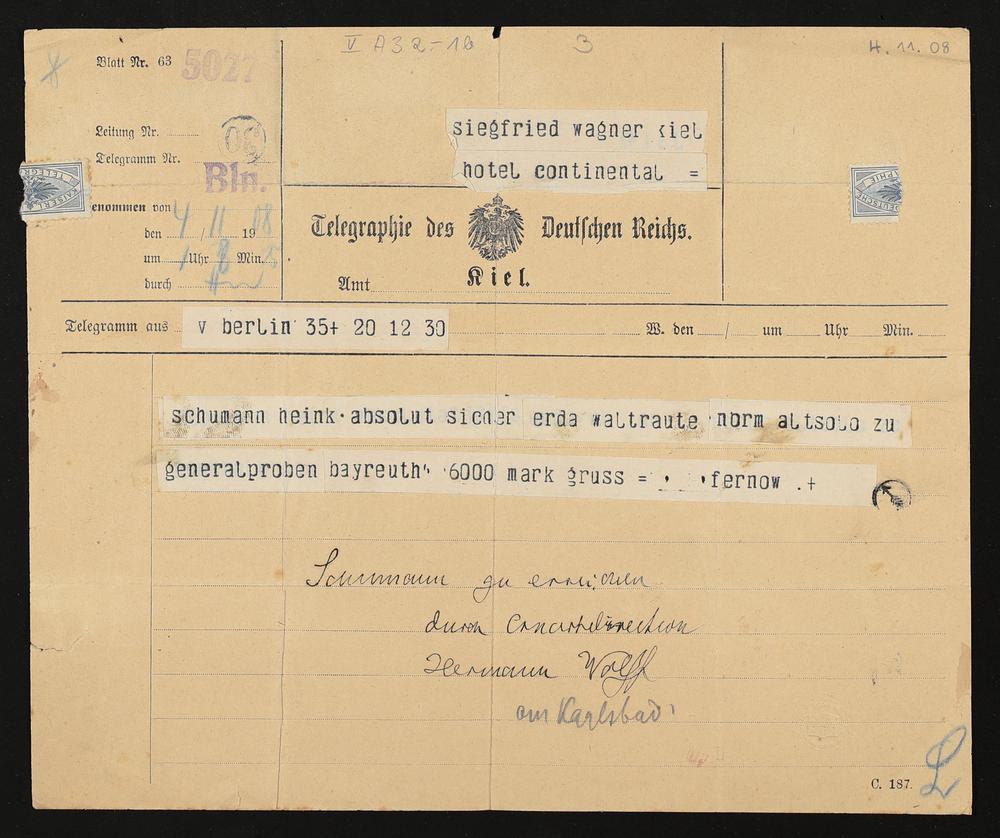 V A 32-1b 3 4. 11. 08
Blatt Nr. 63 5027
Leitung Nr.
Telegramm Nr.
Bln.
siegfried wagner kiel
hotel continental =
KAISERL
TELEGR
PHIE
DEUTSCH
enommen von
den 4 / 11 19 08
um 1 Uhr 8 Min.
durch
Telegraphie des Deutschen Reichs.
Amt Kiel.
Telegramm aus v berlin 35+ 20 12 30 W. den / um Uhr Min.
schumann heink · absolut sicher erda waltraute norm altsolo zu
generalproben bayreuth 6000 mark gruss = fernow . +
Schumann zu erreichen
durch Concertdirection
Hermann Wolff
am Karlsbad
C. 187.